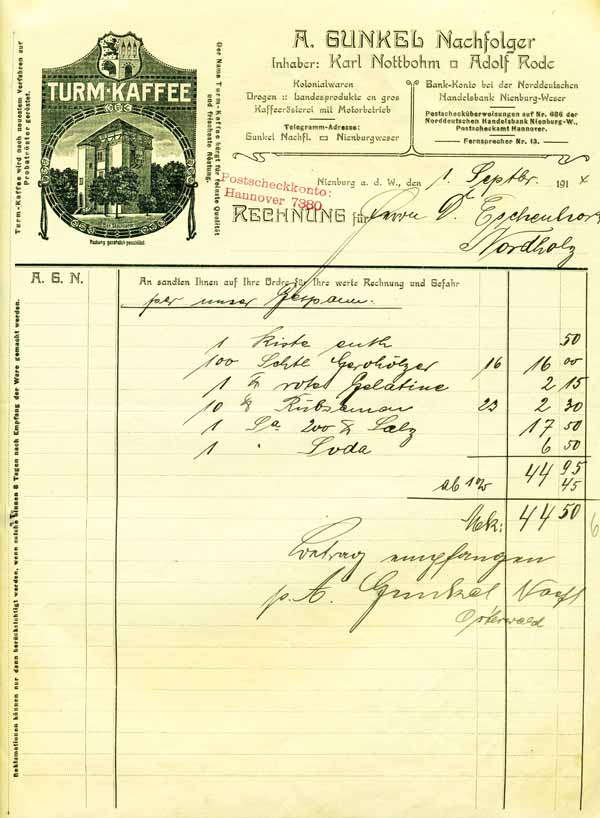 TURM-KAFFEE
Packung gesetzlich geschützt.
Turm-Kaffee wird nach neuestem Verfahren auf Probatröster geröstet.
Der Name Turm-Kaffee bürgt für feinste Qualität und frischeste Röstung.
A. GUNKEL Nachfolger
Inhaber: Karl Nottbohm □ Adolf Rode
Kolonialwaren
Drogen :: Landesprodukte en gros
Kaffeerösterei mit Motorbetrieb
Telegramm-Adresse:
Gunkel Nachfl. □ Nienburgweser
Bank-Konto bei der Norddeutschen
Handelsbank Nienburg-Weser
Postschecküberweisungen auf Nr. 686 der
Norddeutschen Handelsbank Nienburg-W.,
Postscheckamt Hannover.
Fernsprecher Nr. 13.
Postscheckkonto:
Hannover 7380
Nienburg a. d. W., den 1. Septbr. 191 4
RECHNUNG für Herrn Dr. Eschenhorst
Nordholz
A. G. N.
An sandten Ihnen auf Ihre Ordre für Ihre werte Rechnung und Gefahr
per unser Gespann.
1 Kiste enth 50
100 Schtl 16 16 00
1 ℔ rote Gelatine 2 15
10 ℔ Rübsamen 23 2 30
1 Sa 200 ℔ Salz 17 50
1 " Soda 6 50
44 95
ab 1% 45
Mk: 44 50
6
Betrag empfangen
p. A. Gunkel Nachf
Osterwald
Reklamationen können nur dann berücksichtigt werden, wenn solche binnen 8 Tagen nach Empfang der Ware gemacht werden.